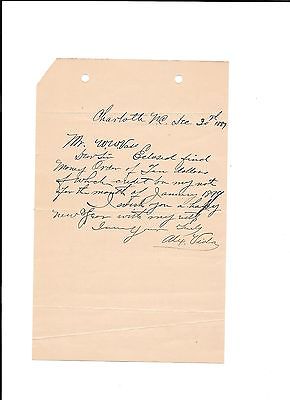 Charlotte NC Dec 30th 1889
Mr. W W Vass
Dear Sir Eclosed find
Money Order of Ten dollars
of which credit to my note
for the month of January
I wish you a happy
new Year with my
I am Your Truly
Alex.